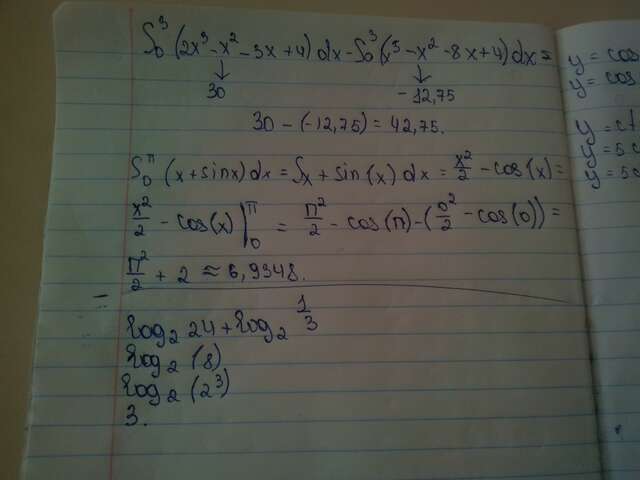 ∫₀³ (2x³-x²-3x+4) dx - ∫₀³ (x³-x²-8x+4) dx =
↓ ↓
30 -12,75
30 - (-12,75) = 42,75.
∫₀^π (x+sinx) dx = ∫x + sin(x) dx = x²/2 - cos(x) =
x²/2 - cos(x) |₀^π = π²/2 - cos(π) - (0²/2 - cos(0)) =
π²/2 + 2 ≈ 6,9348.
log₂ 24 + log₂ 1/3
log₂ (8)
log₂ (2³)
3.
y = cos
y = cos
y = ct
y = 5c
y = 5c